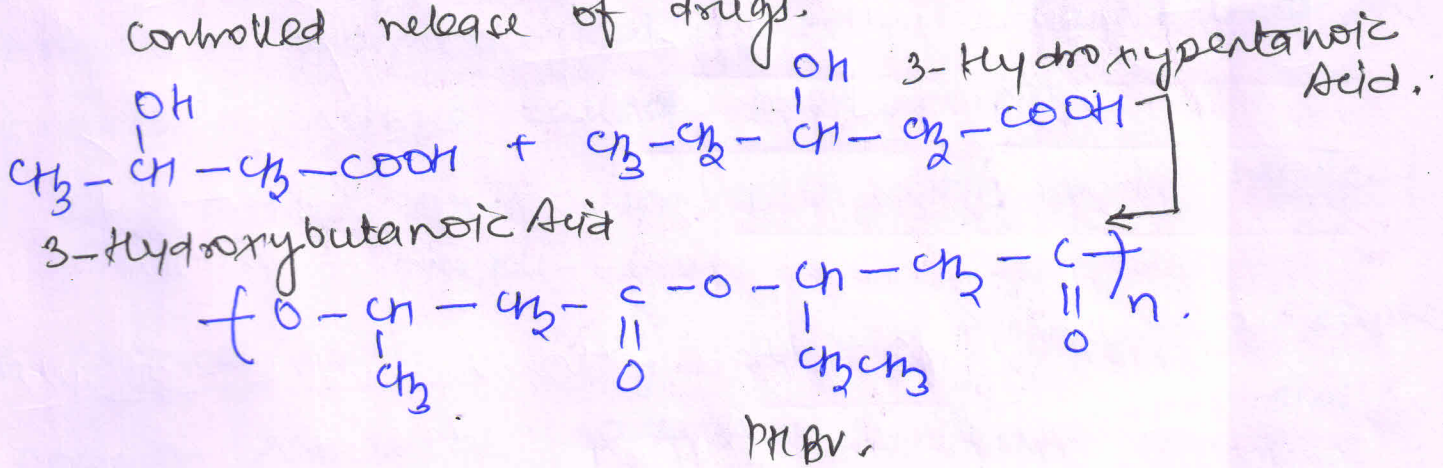 controlled release of drugs.
OH
OH 3-Hydroxypentanoic Acid.
CH3 - CH - CH2 - COOH + CH3 - CH2 - CH - CH2 - COOH
3-Hydroxybutanoic Acid
( O - CH - CH2 - C - O - CH - CH2 - C )n.
CH3 O CH2CH3 O
PHBV.